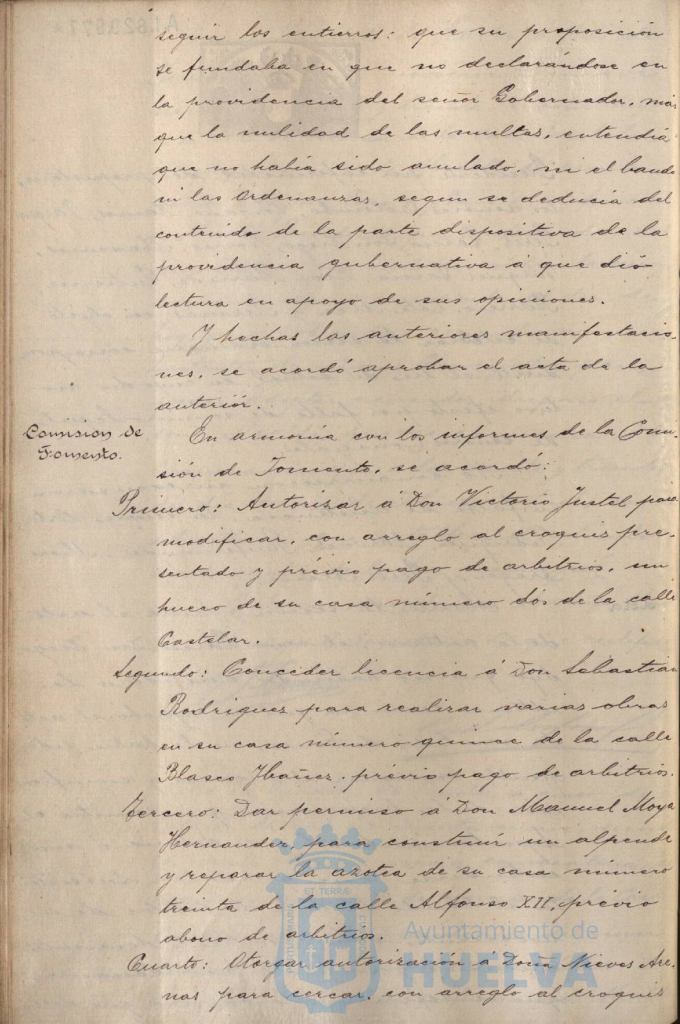 seguir los entierros: que su proposición
se fundaba en que no declarándose en
la providencia del señor Gobernador, mas
que la nulidad de las multas, entendia
que no habia sido anulado, ni el bando
ni las Ordenanzas, segun se deducia del
contenido de la parte dispositiva de la
providencia gubernativa á que dió
lectura en apoyo de sus opiniones.
Y hechas las anteriores manifestacio-
nes, se acordó aprobar el acta de la
anteriór.
Comision de
Fomento.
En armonia con los informes de la Comi-
sión de Fomento, se acordó:
Primero: Autorizar á Don Victorio Justel para
modificar, con arreglo al croquis pre-
sentado y prévio pago de arbitrios, un
hueco de su casa número dos de la calle
Castelar.
Segundo: Conceder licencia á Don Sebastian
Rodriguez para realizar varias obras
en su casa número quince de la calle
Blasco Ibañez, prévio pago de arbitrios.
Tercero: Dar permiso á Don Manuel Moya
Hernandez, para construir un alpende
y reparar la azotea de su casa número
treinta de la calle Alfonso XII, prévio
abono de arbitrios.
Cuarto: Otorgar autorización a Doña Nieves Are-
nas para cercar, con arreglo al croquis
Ayuntamiento de
HUELVA